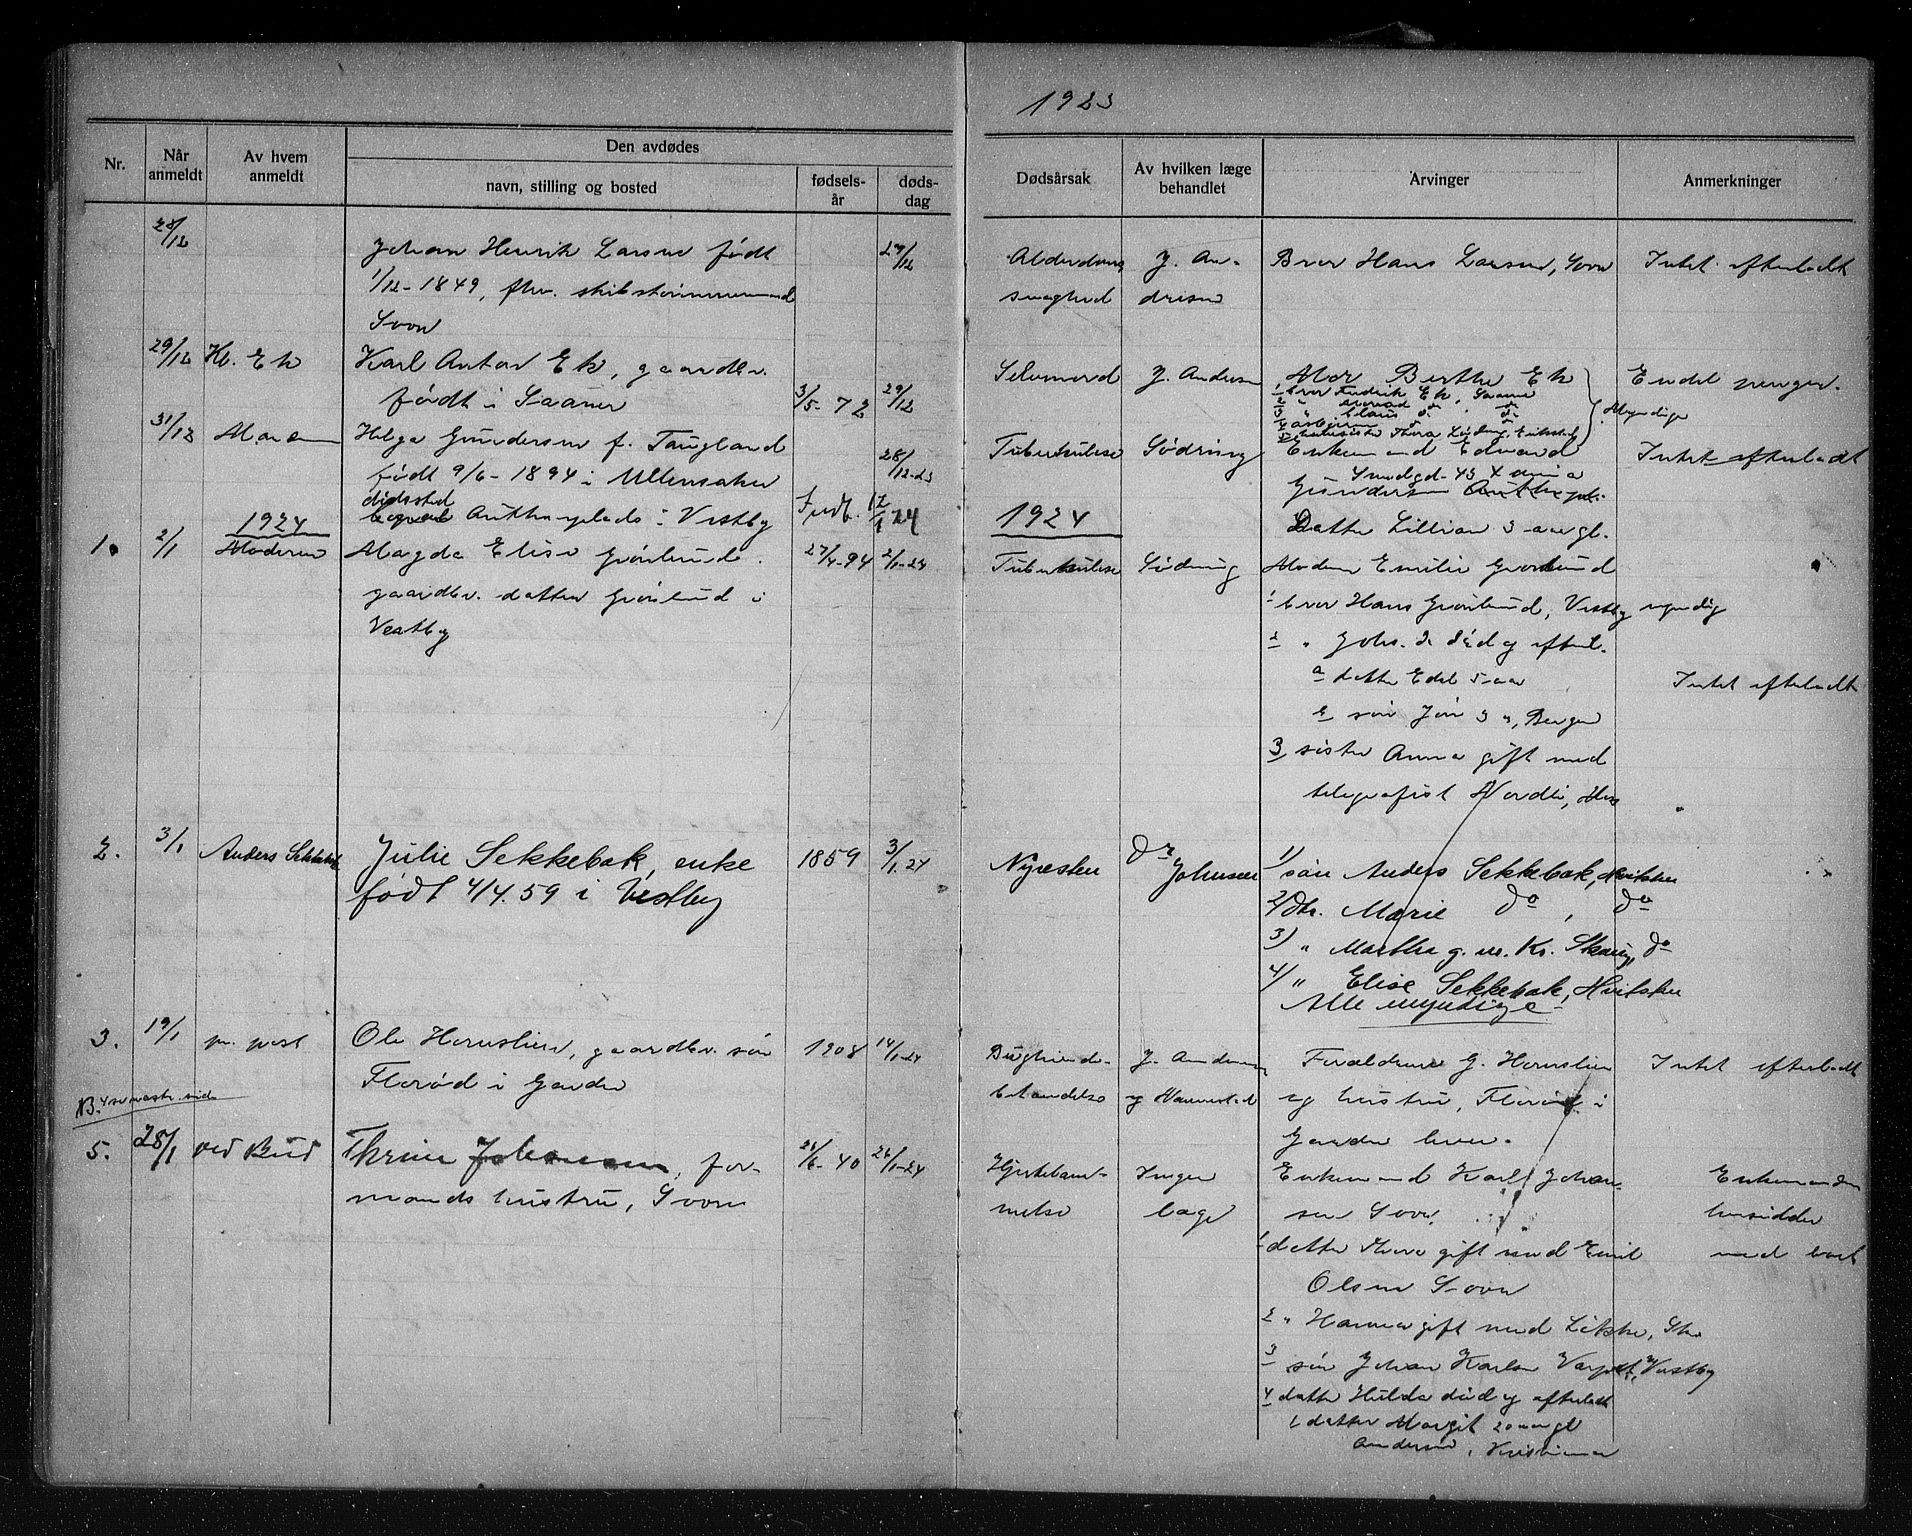 1923
Nr.
Når anmeldt
Av hvem anmeldt
Den avdødes
navn, stilling og bosted
fødsels-år
døds-dag
Dødsårsak
Av hvilken læge behandlet
Arvinger
Anmerkninger
28/12
Johan Henrik Larsen født
27/12
1/12-1849, fhv. skibstømmermand
Soon
Alderdoms
svaghed
J. An-
dresen
Bror Hans Larsen, Soon
Intet efterladt
29/12
Kl. Ek
Karl Anton Ek, gaardbr.
født i Saaner
3/5-72
29/12
Selvmord
J. Andersen
Mor Berthe Ek
1 bror Fredrik Ek, Saane
3 " Claus do do
4 Asbjørn
Myndige
Endel penger
31/12
Helga Gundersen f. Taugland
født 9/6-1894 i Ullensaker
dødssted
i Vestby
28/12-23
Tuberkulose
Sødring
Enkemand Edvard
Gundersen
Datter Lillian 3-aar gl.
Intet efterladt
1924
1924
1.
2/1
Moderen
Magda Elise Grønlund
gaardbr. datter Grønlund i
Vestby
27/4-94
2/1-24
Tuberkulose
Sødring
Moderen Emilie Grønlund
1 bror Hans Grønlund, Vestby myndig
2 " Johs. do død og efterl.
a datter Edel 5 aar
søn Jon 3 ",
3 sister Anna gift med
telegrafist Nordli, Moss
Intet efterladt
2.
3/1
Anders Sekkebæk
Julie Sekkebæk, enke
født 4/4.59 i Vestby
1859
3/1.24
Nyresten
Dr
Johnsen
1/ søn Anders Sekkebæk, Hvitsten
2/ dtr. Marie do, do
3/ " Martha g. m. Kr. Skaug, do
4/ " Elise Sekkebæk, Hvitsten
Alle myndige
3.
19/1
pr. post
Ole Hornslien, gaardbr. søn
Florød i Garder
1908
14/1-24
Bughinde-
betændelse
J. Andersen
og
Forældrene G. Hornslien
og hustru, Florød i
Garder
Intet efterladt
NB. 4 se næste side
5.
28/1
ved Bud
Thrine Johansen, for-
mands hustru, Soon
24/6-40
26/1-24
Hjertelam-
melse
Ingen
læge
Enkemand Karl Johan-
sen Soon
1 datter Thora gift med Emil
Olsen Soon
2 " Hanna gift med
3 søn Johan Karlsen
Vestby
4 datter Hulda død og efterladt
1 datter Margit 20 aar gl.
Andersen, Kristiania
Enkemanden
hensidder
med boet